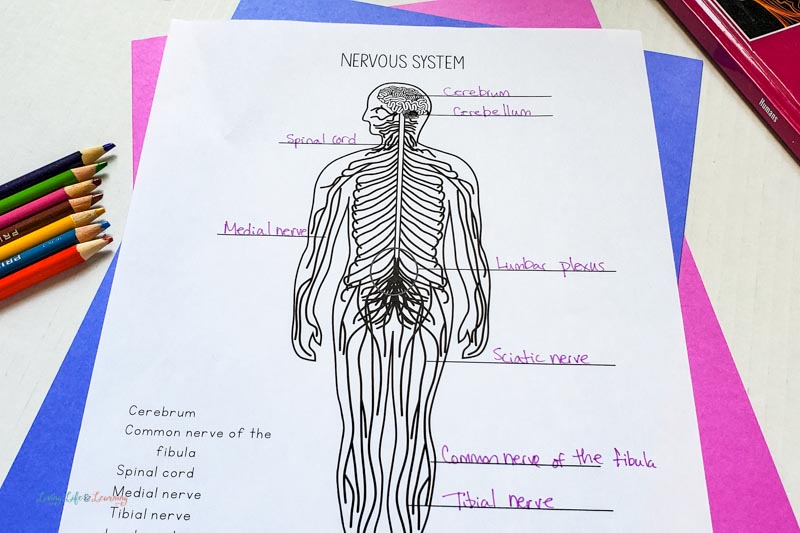 NERVOUS SYSTEM
Cerebrum
Cerebellum
Spinal cord
Medial nerve
Lumbar plexus
Sciatic nerve
Common nerve of the fibula
Tibial nerve
Cerebrum
Common nerve of the
fibula
Spinal cord
Medial nerve
Tibial nerve
Humans
Living Life & Learning